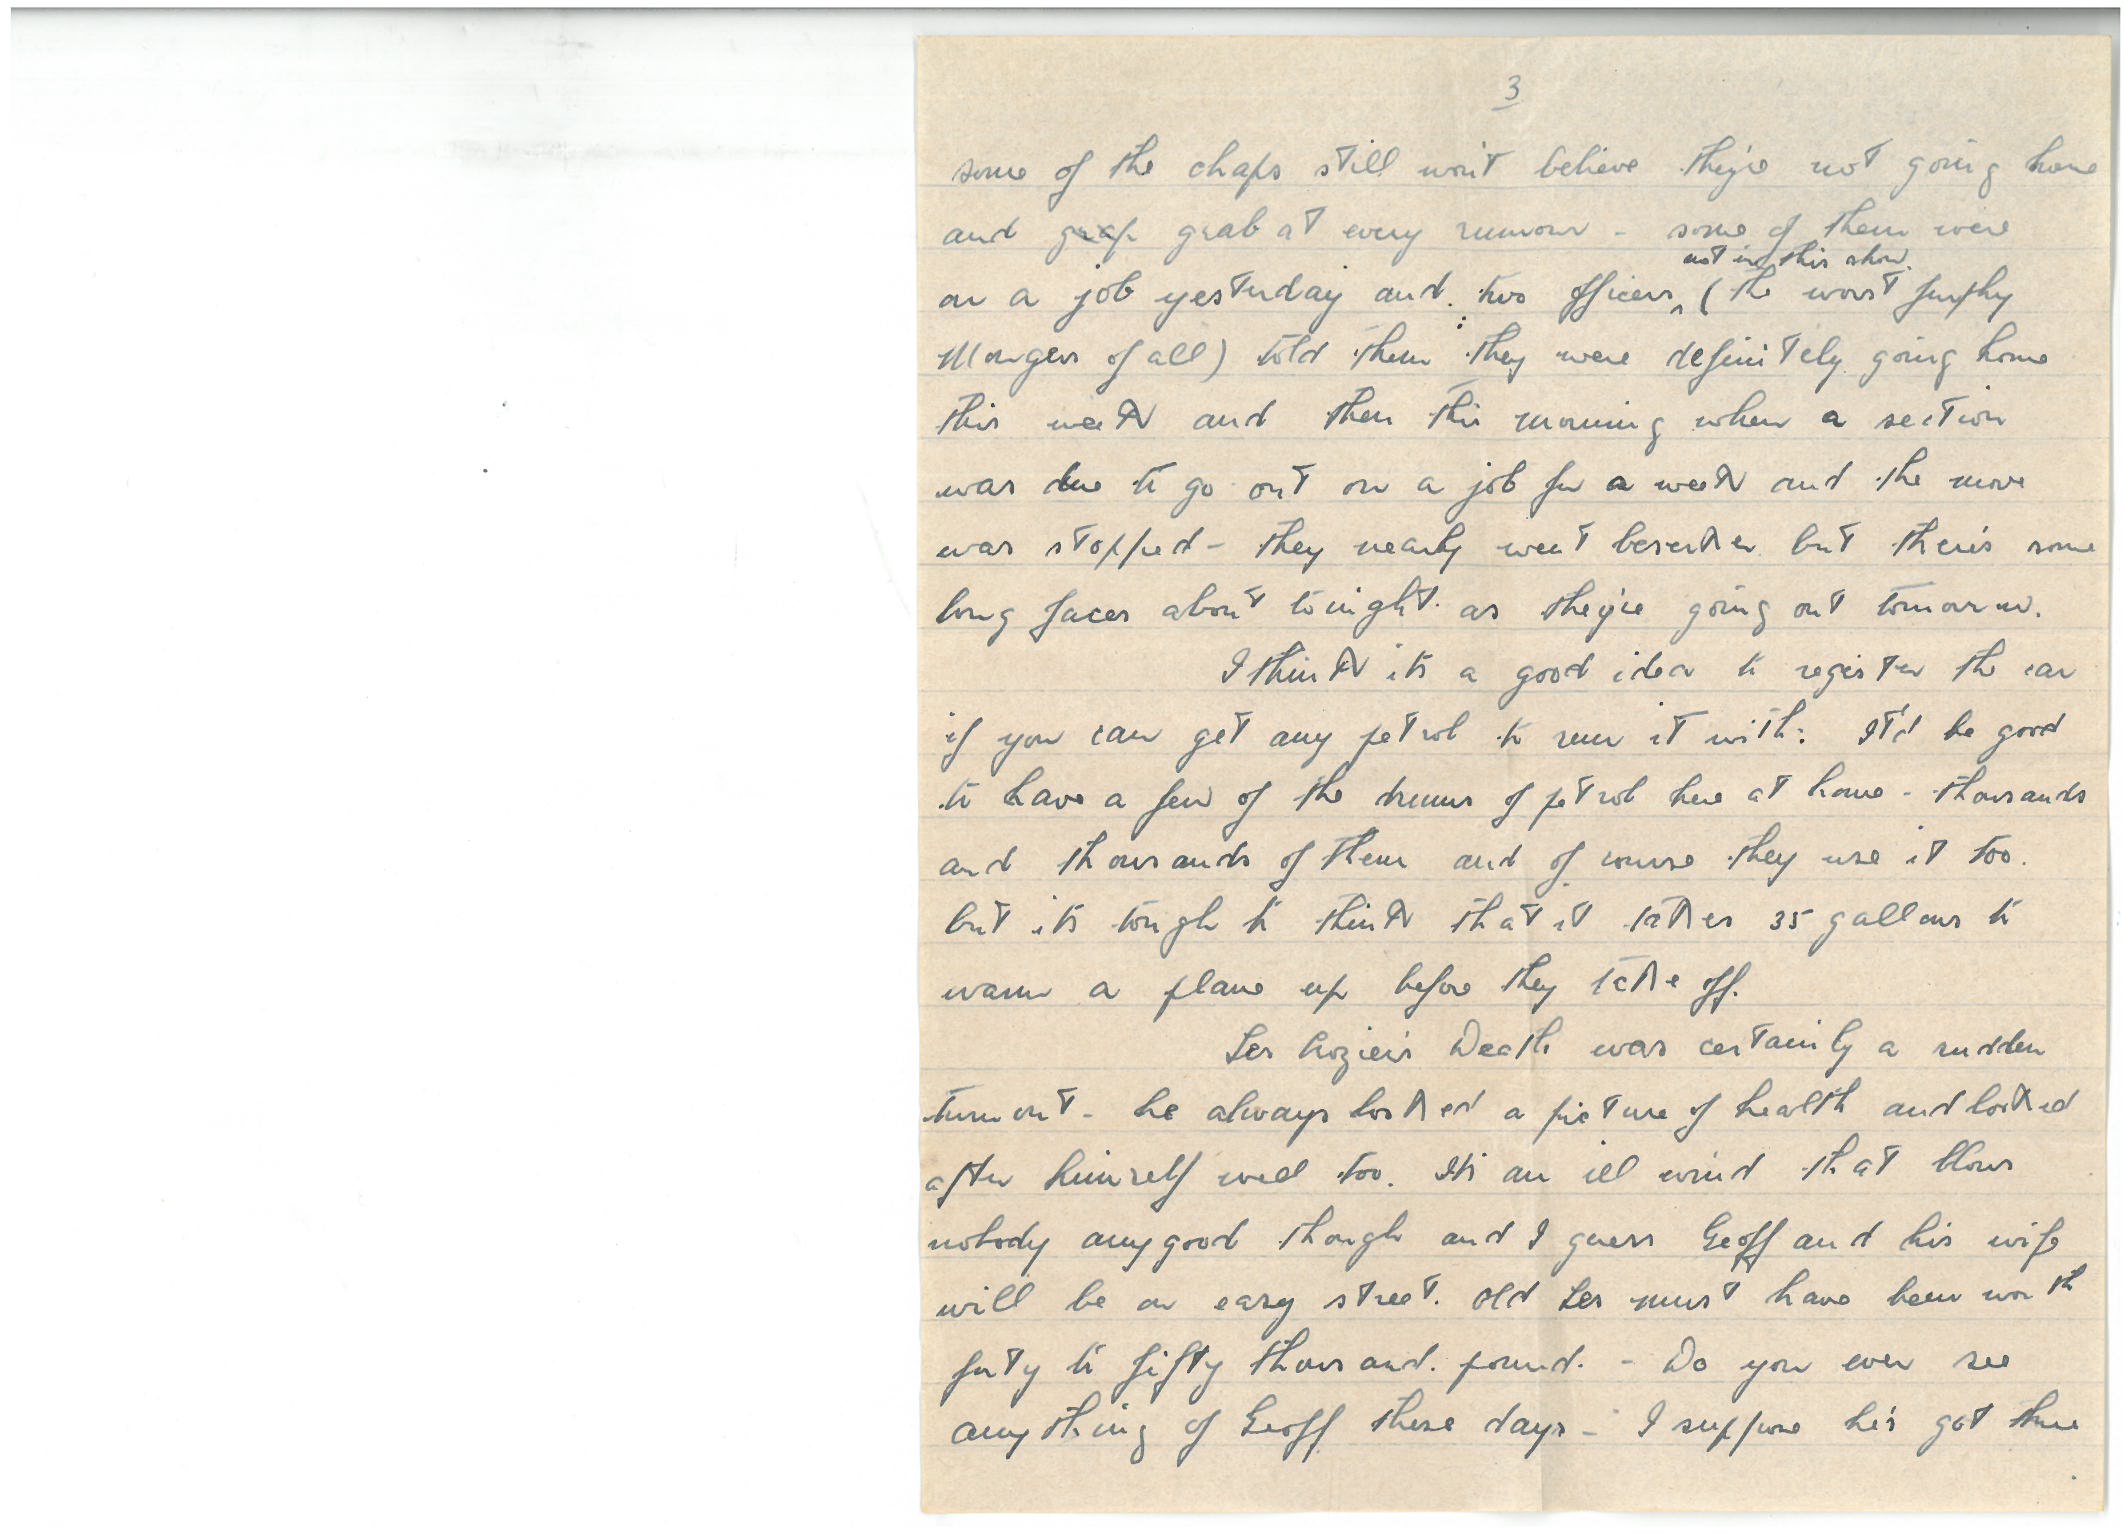 3
some of the chaps still won't believe they're not going home
and grap grab at every rumour - some of them were
not in this show.
on a job yesterday and two officers (the worst furphy
Mongers of all) told them : they were definitely going home
this week and then this morning when a section
was due to go out on a job for a week and the move
was stopped - they nearly went berserker but there's some
long faces about tonight as they're going out tomorrow.
I think its a good idea to register the car
if you can get any petrol to run it with: It'd be good
to have a few of the drums of petrol here at home - thousands
and thousands of them and of course they use it too.
but its tough to think that it takes 35 gallons to
warm a plane up before they take off.
Les Death was certainly a sudden
turnout - he always looked a picture of health and looked
after himself well too. Its an ill wind that blows
nobody any good though and I guess Geoff and his wife
will be on easy street. Old Les must have been worth
forty to fifty thousand. pound. - Do you ever see
anything of Geoff these days - I suppose he's got three